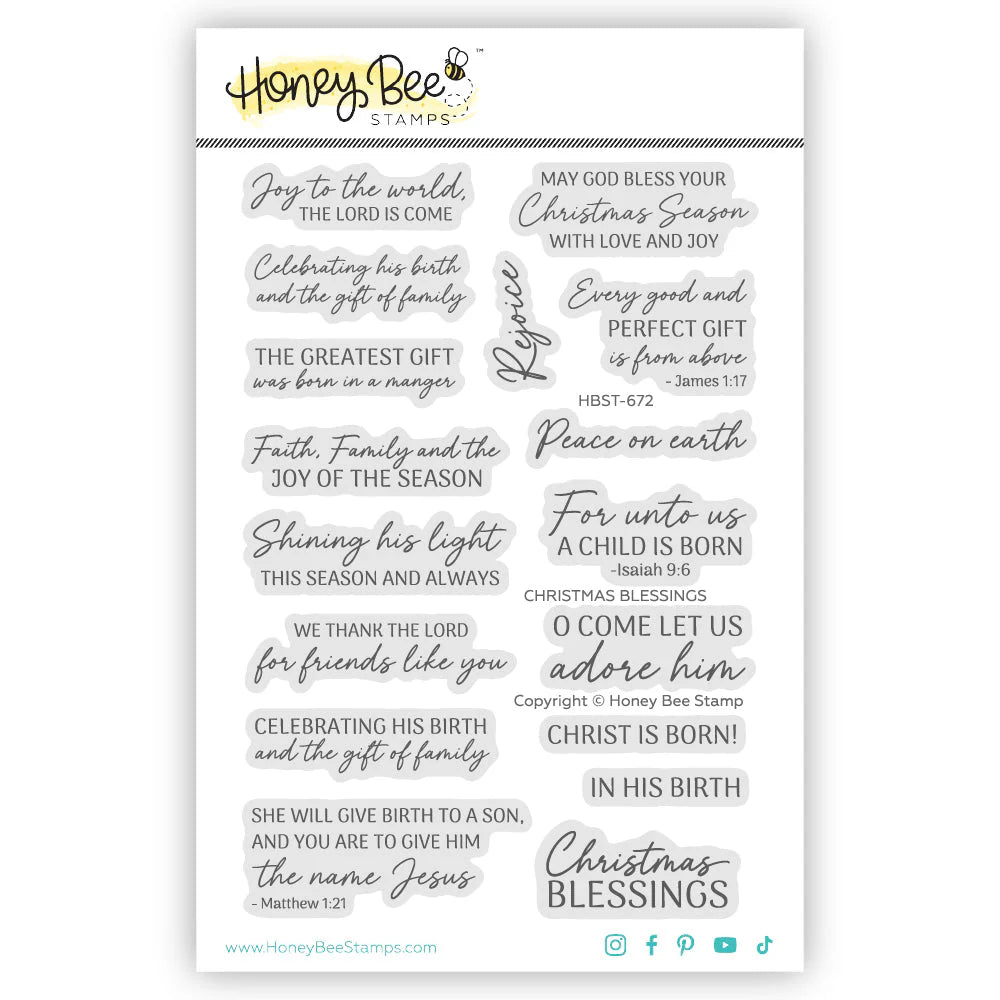 Honey Bee
STAMPS
™
Joy to the world,
THE LORD IS COME
Celebrating his birth
and the gift of family
THE GREATEST GIFT
was born in a manger
Faith, Family and the
JOY OF THE SEASON
Shining his light
THIS SEASON AND ALWAYS
WE THANK THE LORD
for friends like you
CELEBRATING HIS BIRTH
and the gift of family
SHE WILL GIVE BIRTH TO A SON,
AND YOU ARE TO GIVE HIM
the name Jesus
- Matthew 1:21
MAY GOD BLESS YOUR
Christmas Season
WITH LOVE AND JOY
Rejoice
Every good and
PERFECT GIFT
is from above
- James 1:17
HBST-672
Peace on earth
For unto us
A CHILD IS BORN
-Isaiah 9:6
CHRISTMAS BLESSINGS
O COME LET US
adore him
Copyright © Honey Bee Stamp
CHRIST IS BORN!
IN HIS BIRTH
Christmas
BLESSINGS
www.HoneyBeeStamps.com